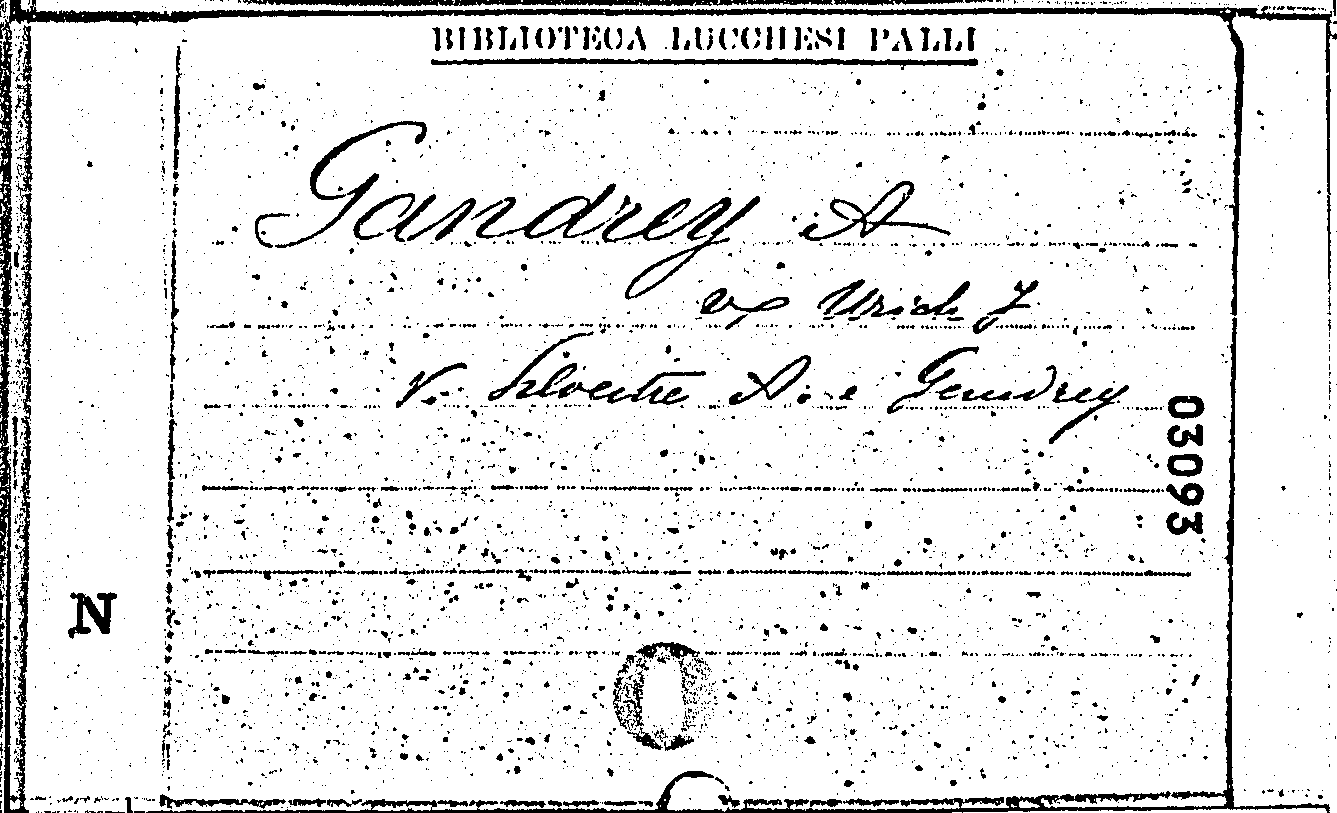 BIBLIOTECA LUCCHESI PALLI
Gandrey A
Urich J
V. Silvestre A. e Gandrey
03093
N